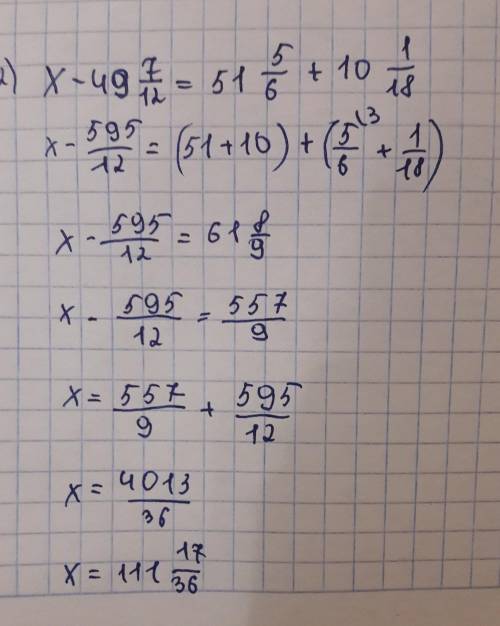 2) x - 49 7/12 = 51 5/6 + 10 1/18
x - 595/12 = (51 + 10) + (5/6 (3 + 1/18)
x - 595/12 = 61 8/9
x - 595/12 = 557/9
x = 557/9 + 595/12
x = 4013/36
x = 111 17/36